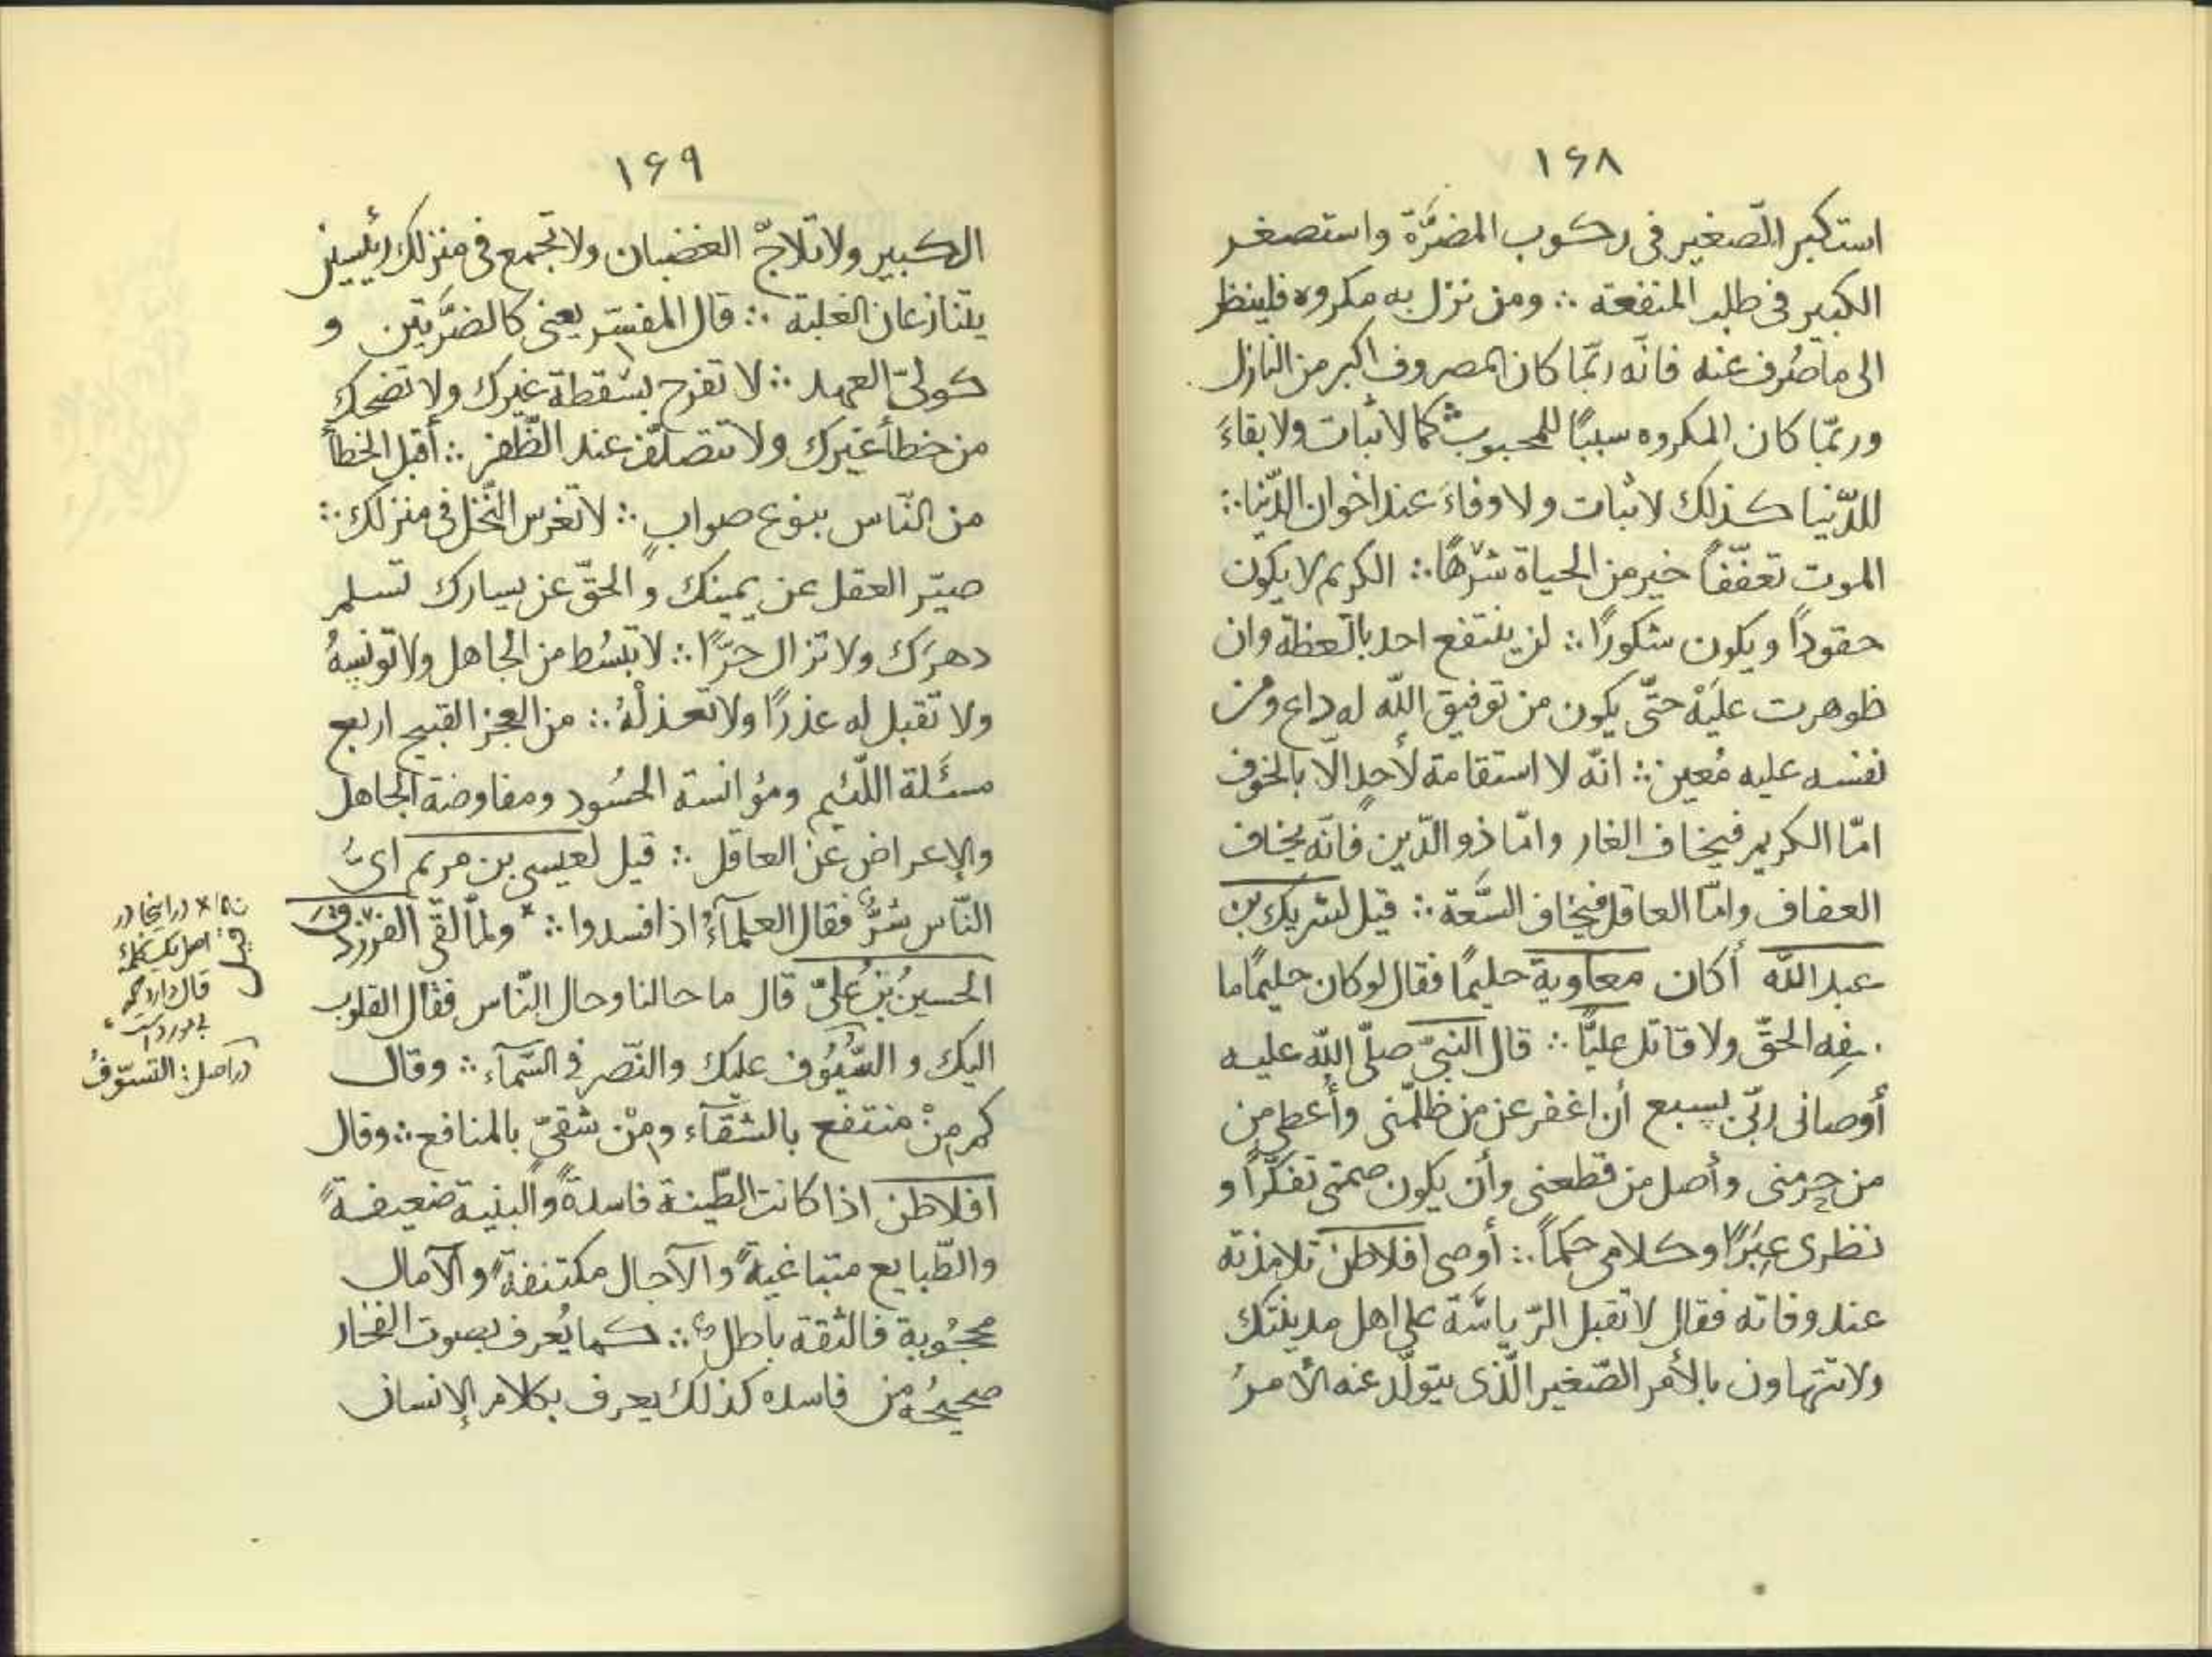 ١۶٨
استكبر الصّغير فى ركوب المضرَّة واستصغر
الكبير فى طلب المنفعة ∴ ومن نزل به مكروه فلينظر
الى ما صُرف عنه فانّه ربّما كان المصروف اكبر من النازل
وربّما كان المكروه سببًا للمحبوب ∴ كما لا ثبات ولا بقاءَ
للدّنيا كذلك لا ثبات ولا وفاءَ عند اخوان الدّنيا ∴
الموت تعفّفاً خير من الحياة شرهًا ∴ الكريم لا يكون
حقوداً ويكون شكورًا ∴ لن ينتفع احد بالعظة وان
ظوهرت عليَهْ حتّى يكون من توفيق اللّه له داع ومن
نفسه عليه مُعين ∴ انّه لا استقامة لأحدٍ الّا بالخوف
امّا الكريم فيخاف العار وامّا ذو الدّين فانّه يخاف
العفاف وامّا العاقل فيخاف السَّعة ∴ قيل لشريك بن
عبد اللّه أكان معاوية حليمًا فقال لو كان حليمًا ما
سفِه الحقّ ولا قاتل عليًّا ∴ قال النبىّ صلّى اللّه عليه
أوصانى ربّى بسبع أن اغفر عن من ظلمنى وأعطى من
من حرمنى وأصل من قطعنى وأن يكون صمتى تفكّراً و
نظرى عِبَرًا وكلامى حكمًا ∴ أوصى افلاطن تلامذته
عند وفاته فقال لا تقبل الرّياسَة على اهل مدينتك
ولا تتهاون بالأمر الصّغير الّذى يتولّد عنه الأمرُ
١۶٩
الكبير ولا تلاجّ الغضبان ولا تجمع فى منزلك رئيسين
يتنازعان الغلبة ∴ قال المفسّر يعنى كالضرّتين و
كولىّ العهد ∴ لا تفرح بسَقطة غيرك ولا تضحك
من خطأ غيرك ولا تتصلّف عند الظّفر ∴ أقبل الخطأ
من النّاس بنوع صوابٍ ∴ لا تغرس النّخل فى منزلك ∴
صيّر العقل عن يمينك والحقّ عن يسارك تسلم
دهرَك ولا تزال حرًّا ∴ لا تبسُط من الجاهل ولا تونسهُ
ولا تقبل له عذرًا ولا تعذلْهُ ∴ من العجز القبيح اربع
مسئَلة اللّئيم ومؤانسة الحسُود ومفاوضة الجاهل
والإعراض عن العاقل ∴ قيل لعيسى بن مريم اىُّ
النّاس شرٌّ فقال العلمآءُ اذا فسدوا ∴ * ولمّا لقى الفرزدق
الحسينُ بن علىّ قال ما حالنا وحال النّاس فقال القلوب
اليك و السّيُوُف عليك والنّصر فى السّمآء ∴ وقال
كم مِنْ منتفع بالشقآء ومِنْ شقىّ بالمنافع ∴ وقال
افلاطن اذا كانت الطّينة فاسدةً والبنية ضعيفةً
والطّبايع متباغيةً والآجال مكتنفةً والآمال
محجُوبة فالثقة باطل ∴ كما يُعرف بصوت الفخار
صحيحُه من فاسده كذلك يعرف بكلام الإنسان
* در اينجا در
اصل يك كلمه
قال دارد كه
بى مورد است
در اصل : السّوفُ